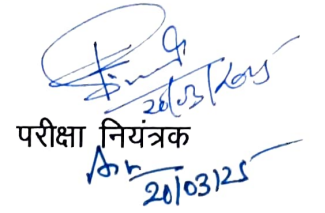 20/03/2025
परीक्षा नियंत्रक
20/03/25